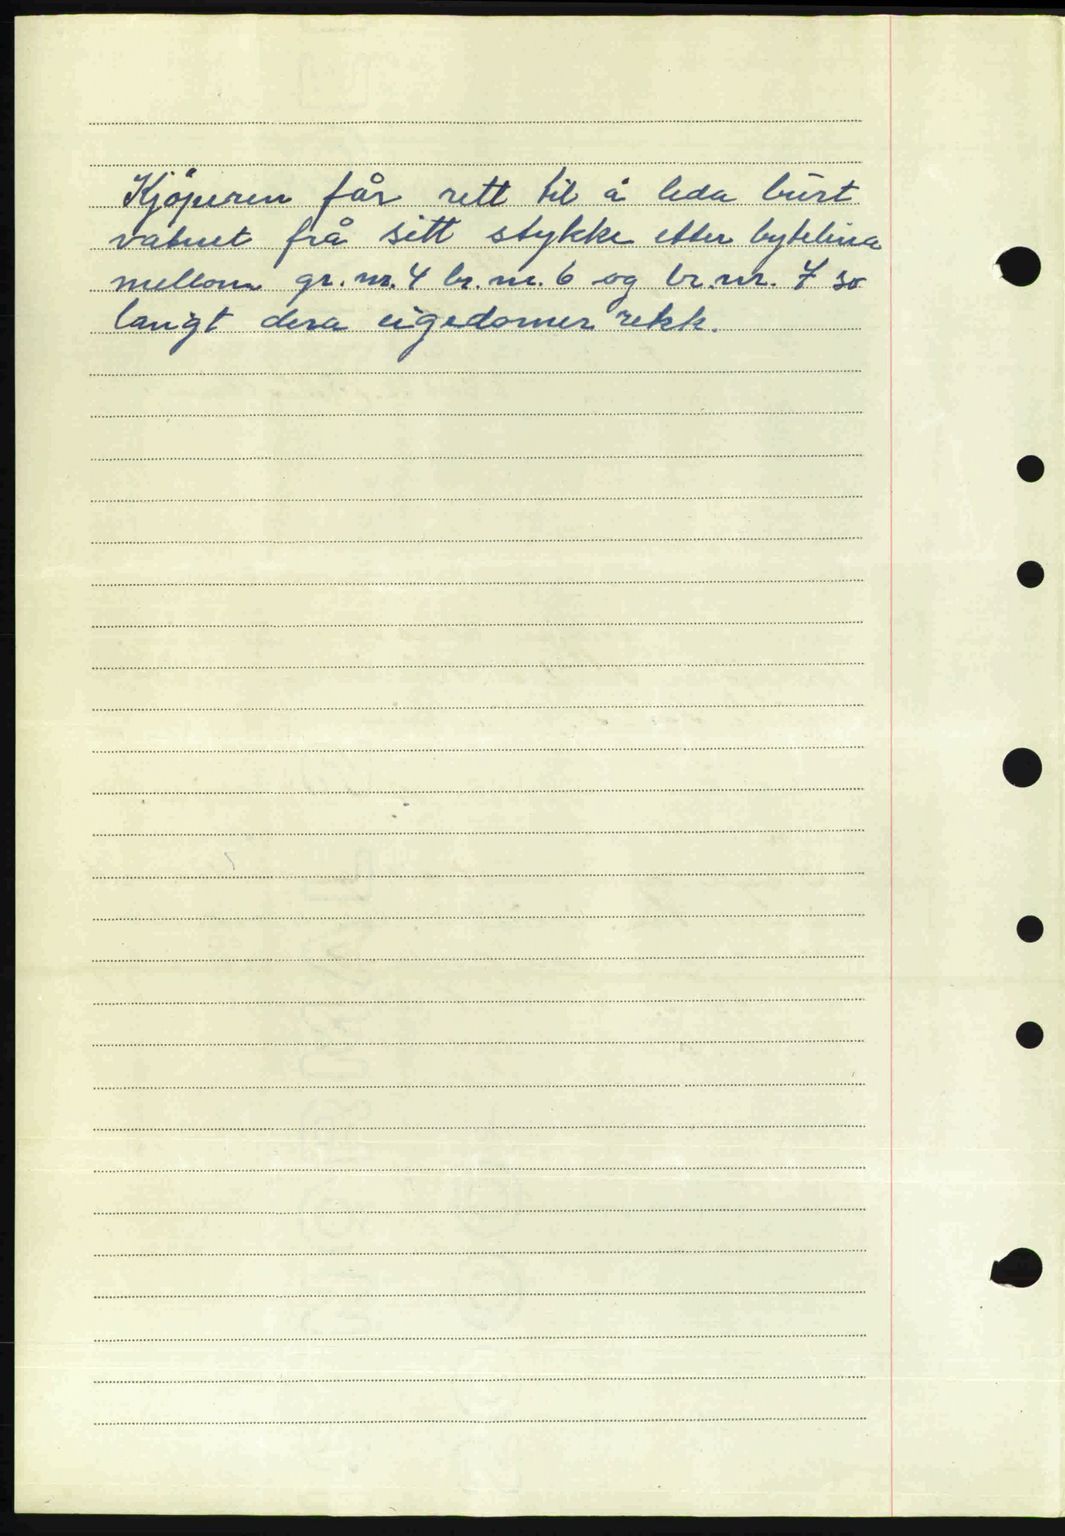 Kjöperen får rett til å leda burt
vatnet frå sitt stykke etter bytelina
mellom gr. nr. 4 br. nr. 6 og br. nr. 7 so
langt dera eigedomer rekk.